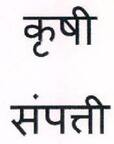 कृषी
संपत्ती